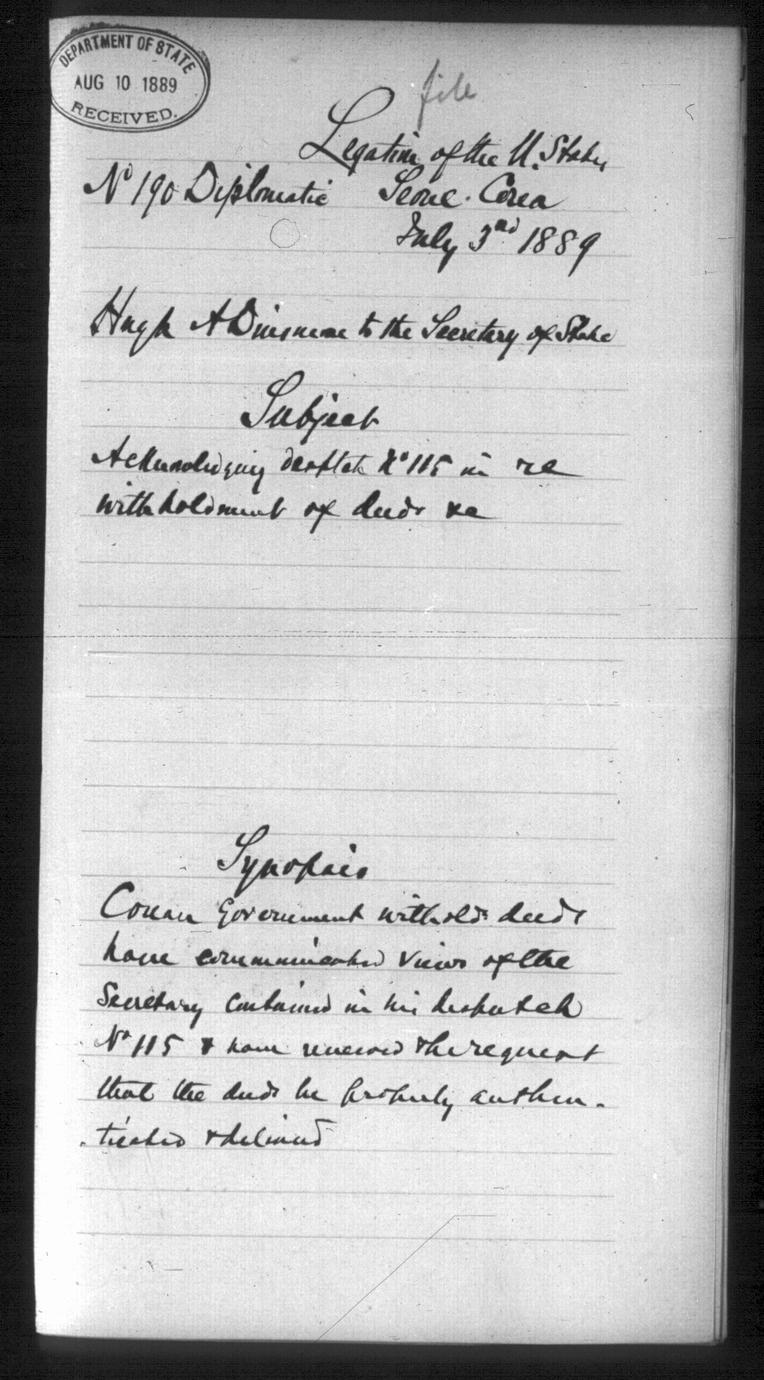 DEPARTMENT OF STATE
AUG 10 1889
RECEIVED.
file
Legation of the U. States
Nº 190 Diplomatic Seoul. Corea
July 3rd 1889
Hugh A Dinsmore to the Secretary of State
Subject
Acknowledging despatch Nº 115 in re
withholdment of deeds &c
Synopsis
Corean Government witholds deeds
have communicated views of the
Secretary contained in his despatch
Nº 115 & have renewed the request
that the deeds be properly authen-
ticated & delivered